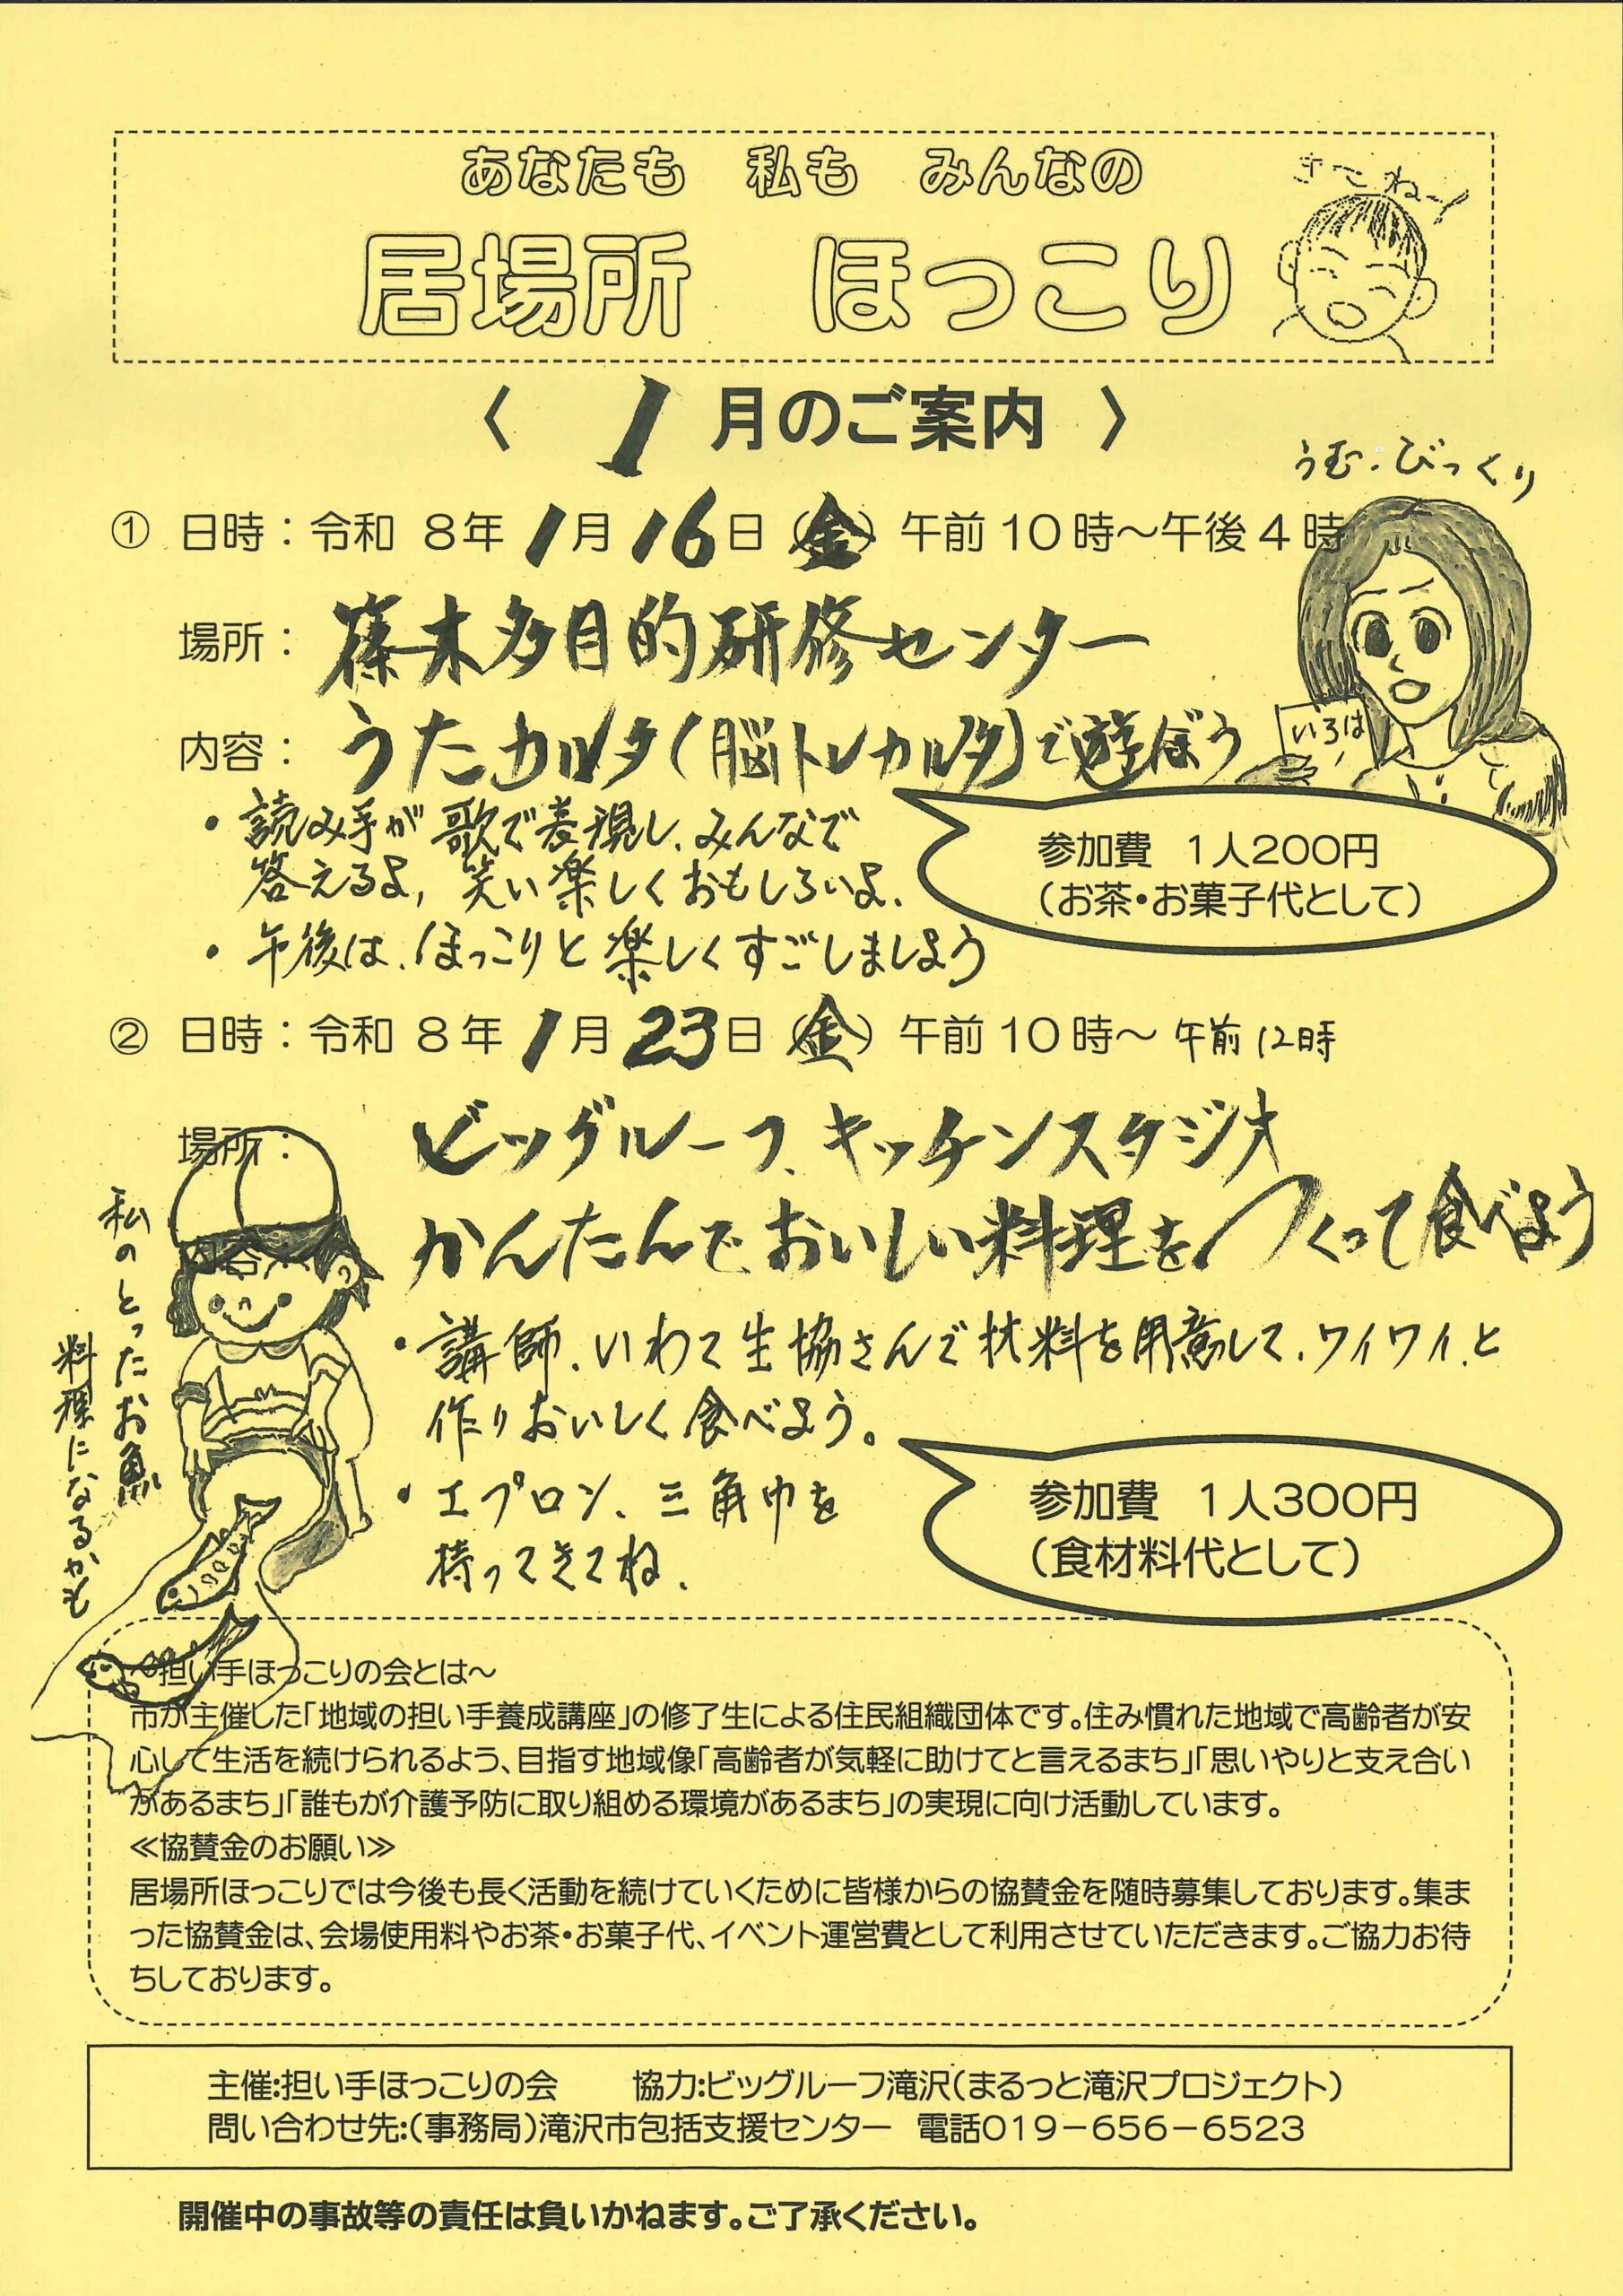 あなたも 私も みんなの
居場所 ほっこり
〈 1月のご案内 〉
うむ・びっくり
① 日時：令和 8年 1月 16日（金）午前 10 時～午後 4 時
場所： 篠木多目的研修センター
内容： うたカルタ(脳トレカルタ)で遊ぼう
いろは
・読み手が歌で表現し、みんなで
答えるよ, 笑い楽しくおもしろいよ.
・午後は、ほっこりと楽しくすごしましよう
参加費 1人200円
（お茶・お菓子代として）
② 日時：令和 8年 1月 23日（金）午前 10 時～ 午前 12時
場所： ビッグルーフ、キッチンスタジオ
内容： かんたんでおいしい料理をつくって食べよう
・講師、いわて生協さんで材料を用意して、ワイワイ、と
作りおいしく食べよう。
・エプロン、三角巾を
持ってきてね.
私のとったお魚
料理になるかも
参加費 1人300円
（食材料代として）
～担い手ほっこりの会とは～
市が主催した「地域の担い手養成講座」の修了生による住民組織団体です。住み慣れた地域で高齢者が安
心して生活を続けられるよう、目指す地域像「高齢者が気軽に助けてと言えるまち」「思いやりと支え合い
があるまち」「誰もが介護予防に取り組める環境があるまち」の実現に向け活動しています。
≪協賛金のお願い≫
居場所ほっこりでは今後も長く活動を続けていくために皆様からの協賛金を随時募集しております。集ま
った協賛金は、会場使用料やお茶・お菓子代、イベント運営費として利用させていただきます。ご協力お待
ちしております。
主催:担い手ほっこりの会 協力:ビッグルーフ滝沢(まるっと滝沢プロジェクト)
問い合わせ先:(事務局)滝沢市包括支援センター 電話019－656－6523
開催中の事故等の責任は負いかねます。ご了承ください。